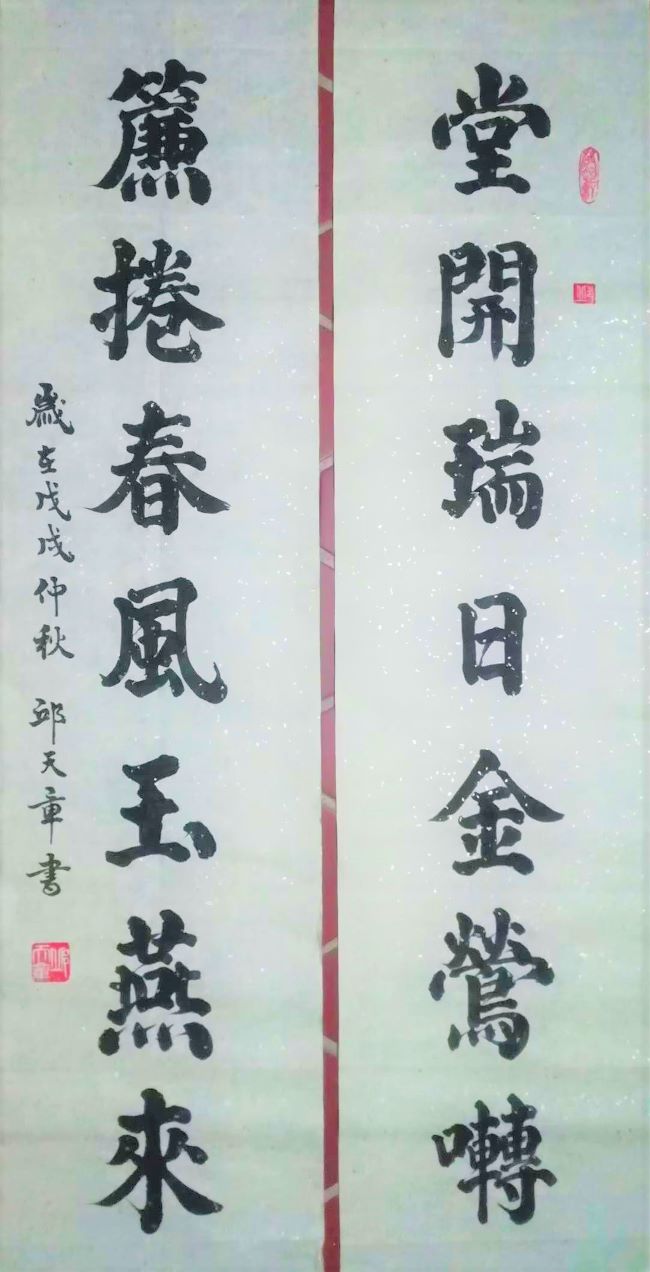 堂開瑞日金鶯囀
簾捲春風玉燕來
歲在戊戌仲秋 邱天章書